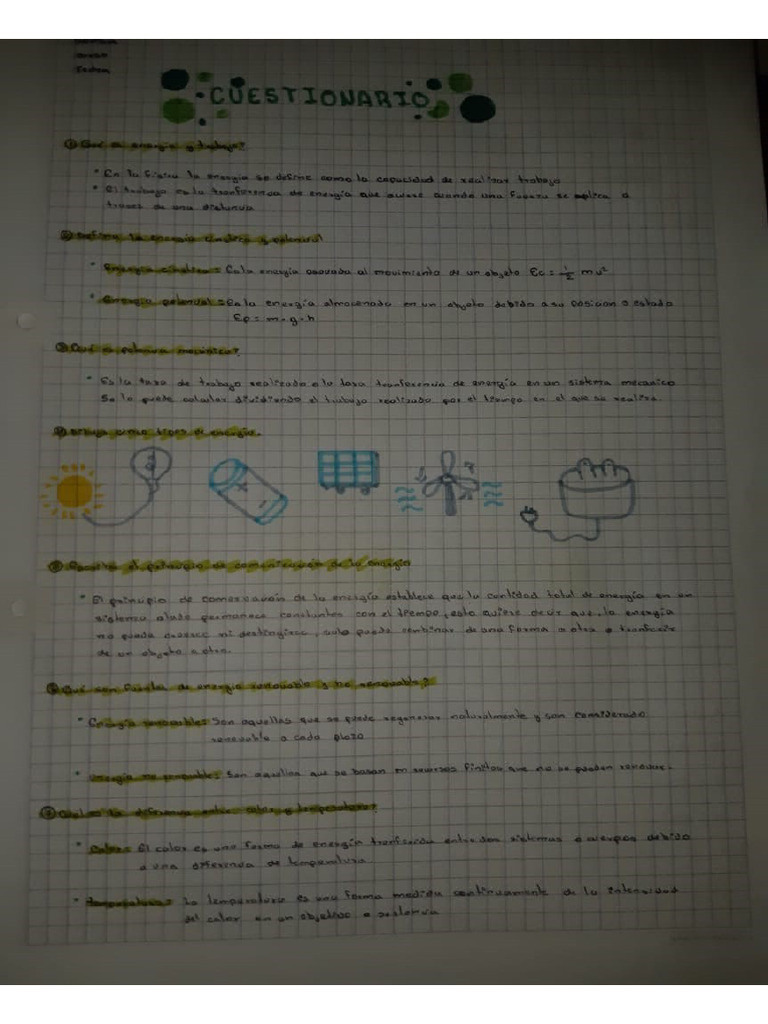 CUESTIONARIO
① Qué es energía y trabajo?
• En la física la energía se define como la capacidad de realizar trabajo
• El trabajo es la tranferencia de energía que ocurre cuando una fuerza se aplica a
traves de una distancia
② Defina la energía cinética y potencial
• Energía cinética: Es la energía asociada al movimiento de un objeto Ec = 1/2 mv²
• Energía potencial: Es la energía almacenada en un objeto debido a su posicion o estado
Ep = m · g · h
③ Qué es potencia mecánica?
• Es la tasa de trabajo realizado o la tasa tranferencia de energía en un sistema mecanico
Se lo puede calcular dividiendo el trabajo realizado por el tiempo en el que se realiza.
④ tipos de energía.
⑤ el principio de de la energía
• El principio de conservación de la energía establece que la cantidad total de energía en un
sistema permanece constantes con el tiempo, esto quiere decir que la energía
no puede ni solo puede de una forma a otra o tranferir
de un objeto a otro.
⑥ Qué son fuentes de energía renovable y no renovable?
• Energía renovables: Son aquellas que se puede regenerar naturalmente y son considerado
renovable a cada plazo
• Son que se basan en finitos que no se pueden
⑦ Cuál es la diferencia entre calor y temperatura?
• Calor: El calor es una forma de energía entre dos sistemas o cuerpos debido
a una diferencia de temperatura
• Temperatura: La temperatura es una forma medida continuamente de la intensidad
del calor en un o